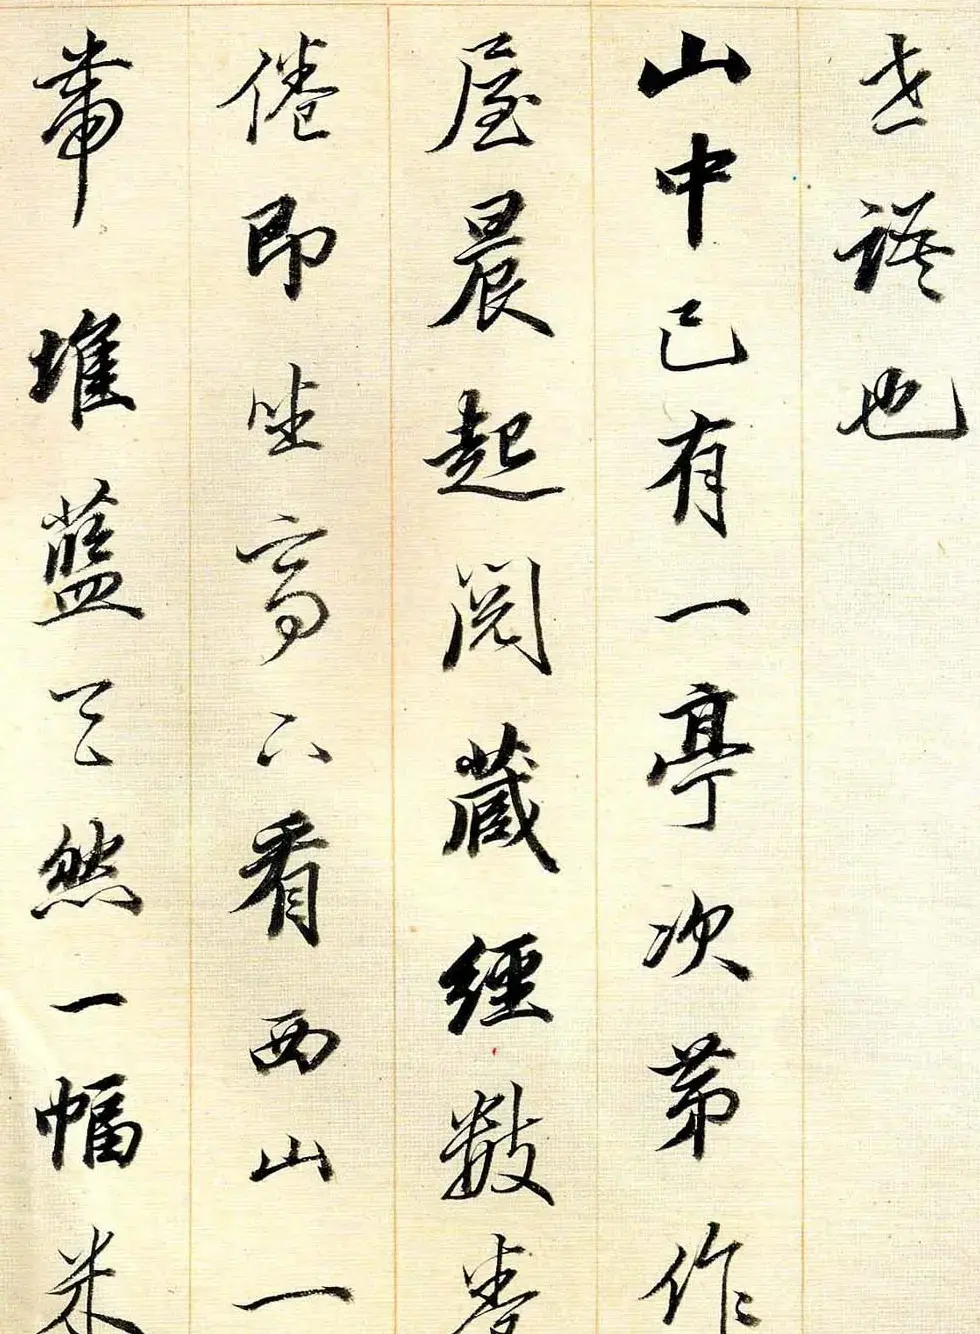 語也
山中已有一亭次第作
屋晨起閱藏經數卷
倦即坐亭下看西山一
帶堆藍天然一幅米